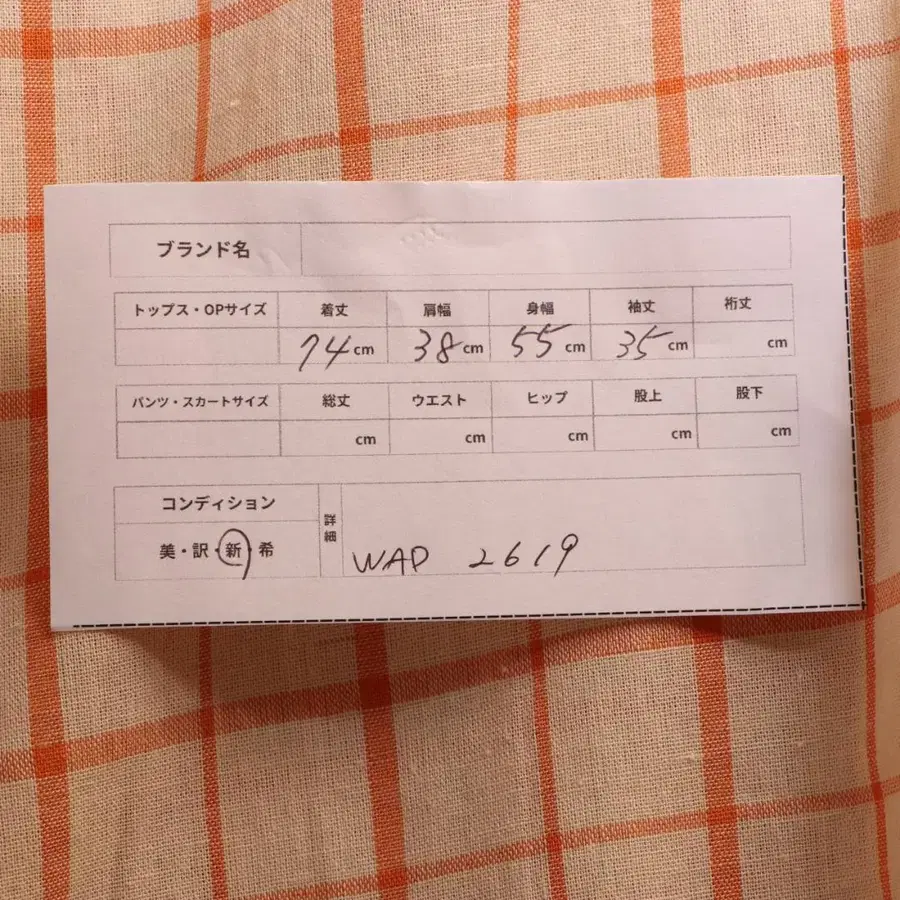 ブランド名
トップス・OPサイズ 着丈 肩幅 身幅 袖丈 裄丈
74cm 38cm 55cm 35cm cm
パンツ・スカートサイズ 総丈 ウエスト ヒップ 股上 股下
cm cm cm cm cm
コンディション 詳細
美・訳・新・希 WAD 2619